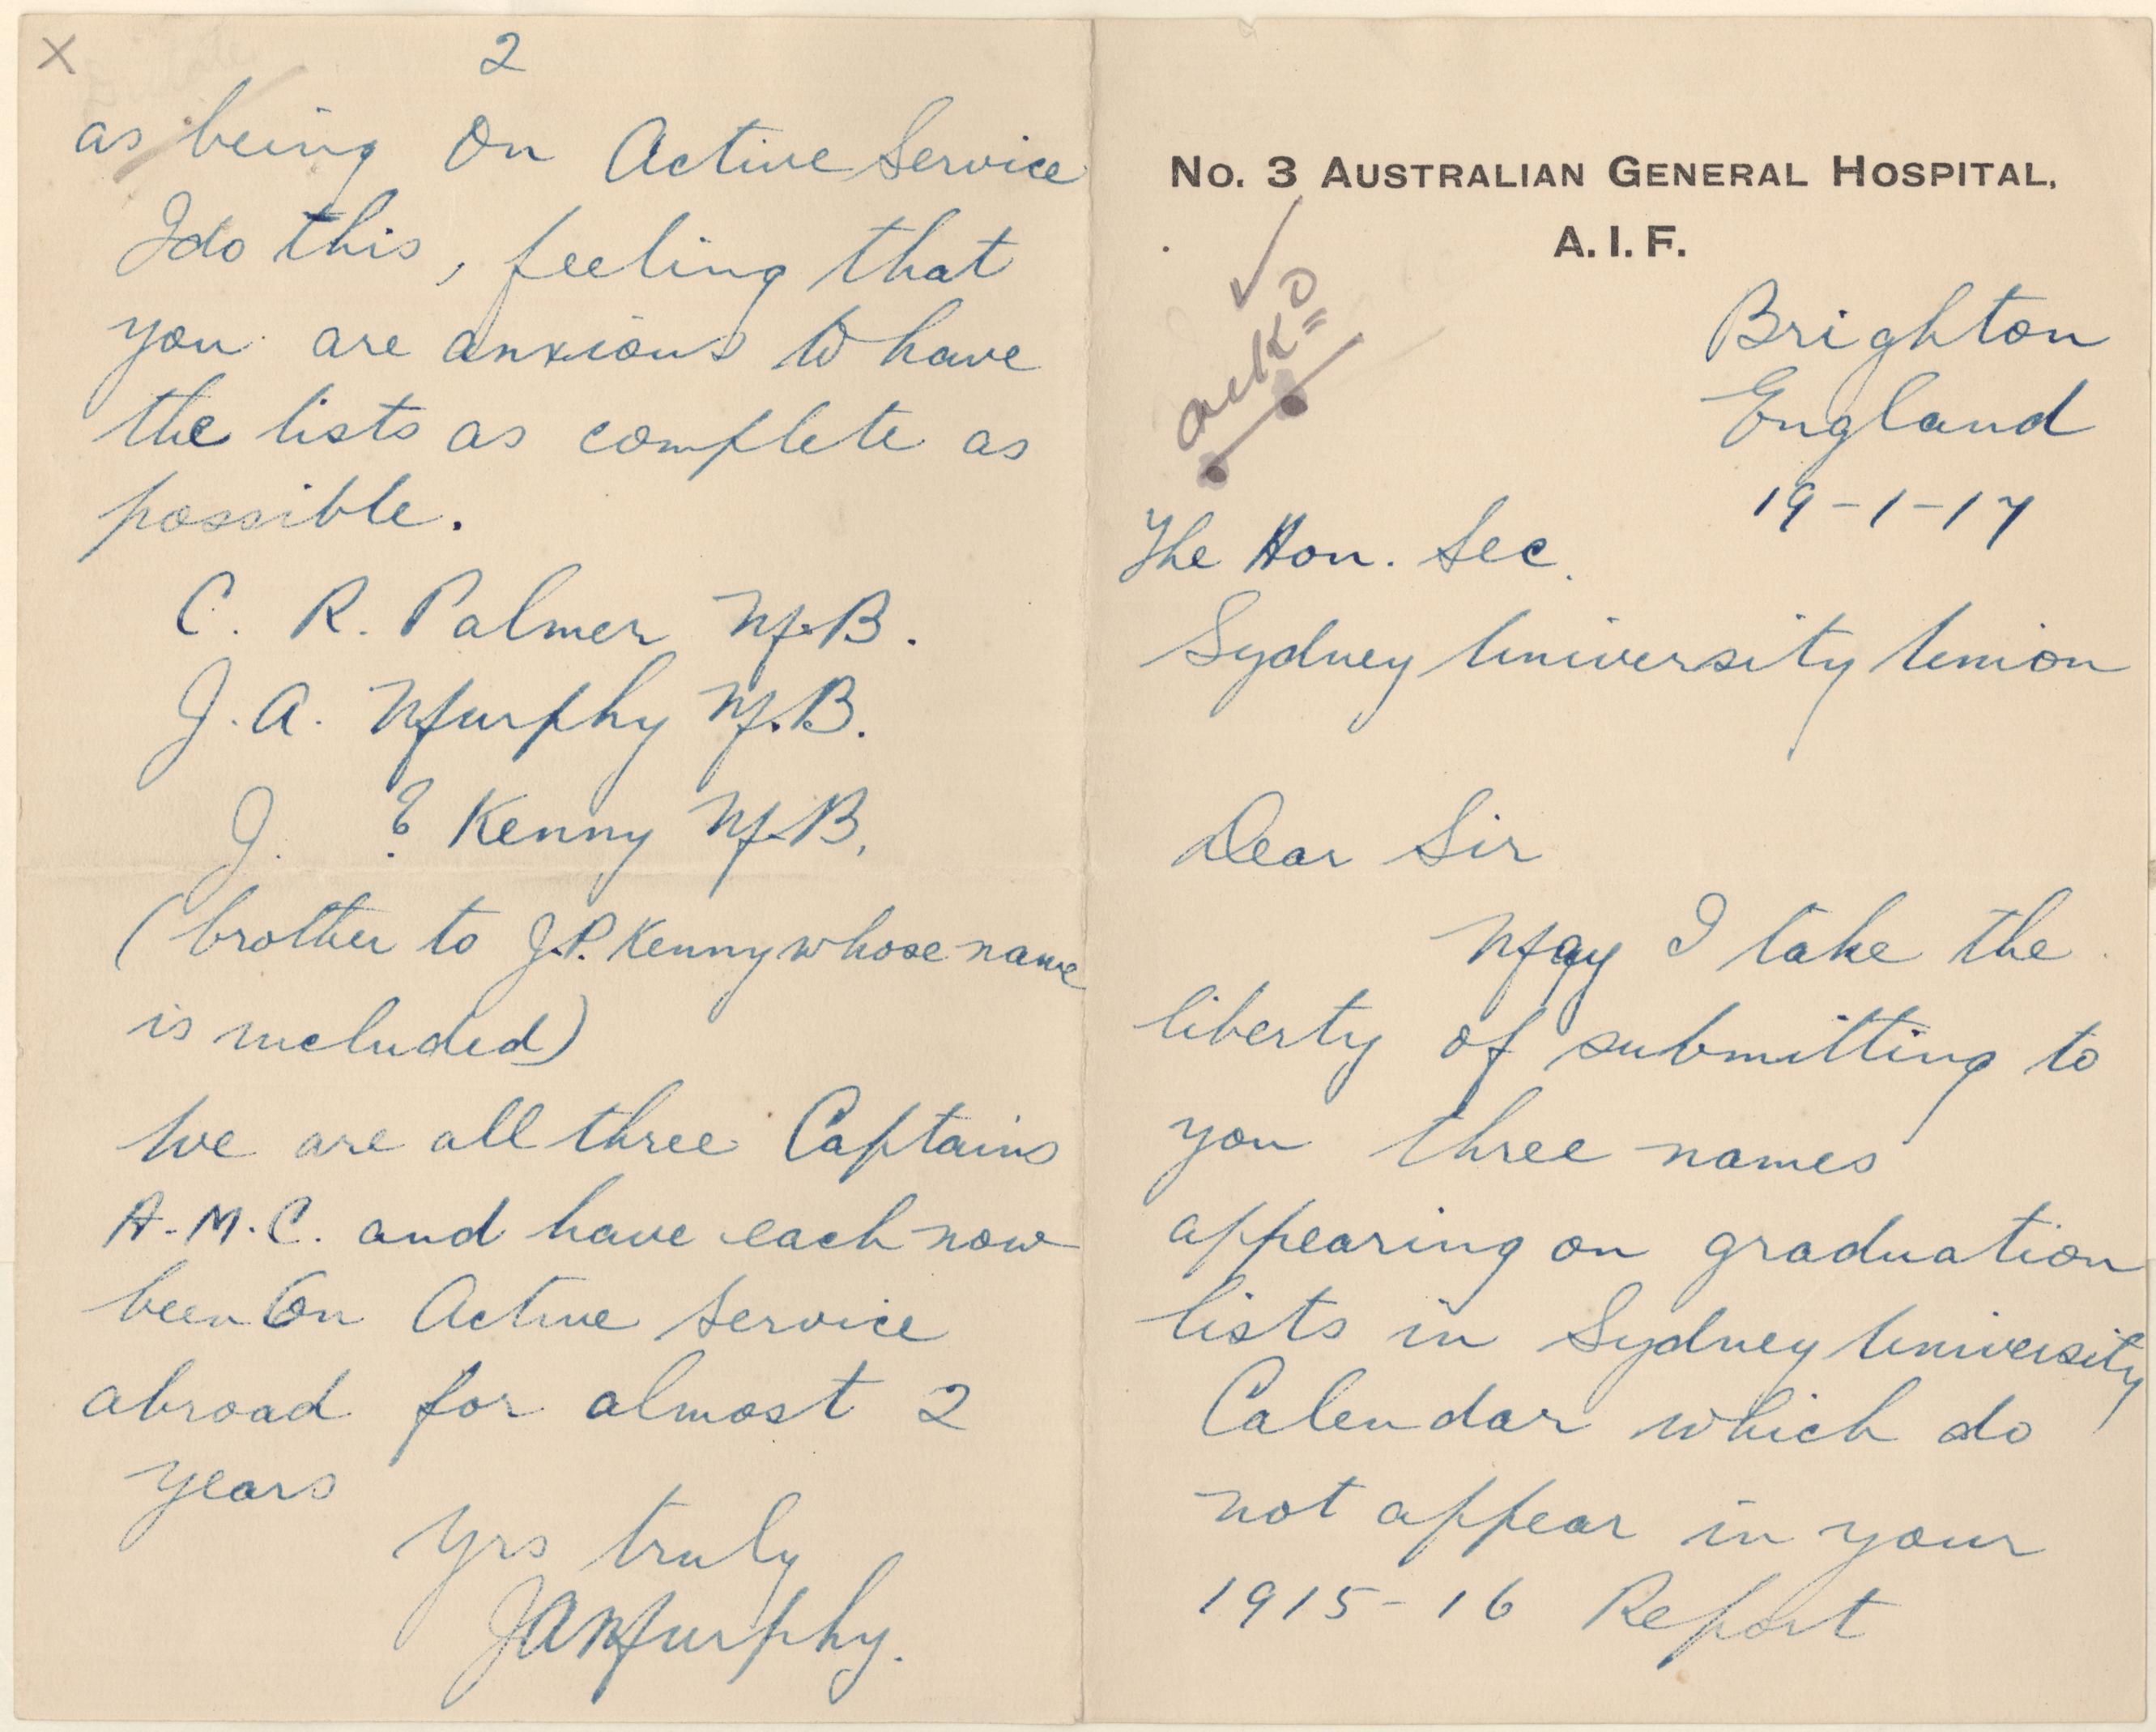 No. 3 Australian General Hospital,
A. I. F.
ackd
Brighton
England
19-1-17
The Hon. Sec.
Sydney University Union
Dear Sir
May I take the
liberty of submitting to
you three names
appearing on graduation
lists in Sydney University
Calendar which do
not appear in your
1915-16 Report
X
2
as being On Active Service
I do this, feeling that
you are anxious to have
the lists as complete as
possible.
C. R. Palmer M.B.
J. A. Murphy M.B.
J. ? Kenny M.B.
(brother to J.P. Kenny whose name
is included)
We are all three Captains
A.M.C. and have each now
been On Active Service
abroad for almost 2
years
Yrs truly
JAMurphy.